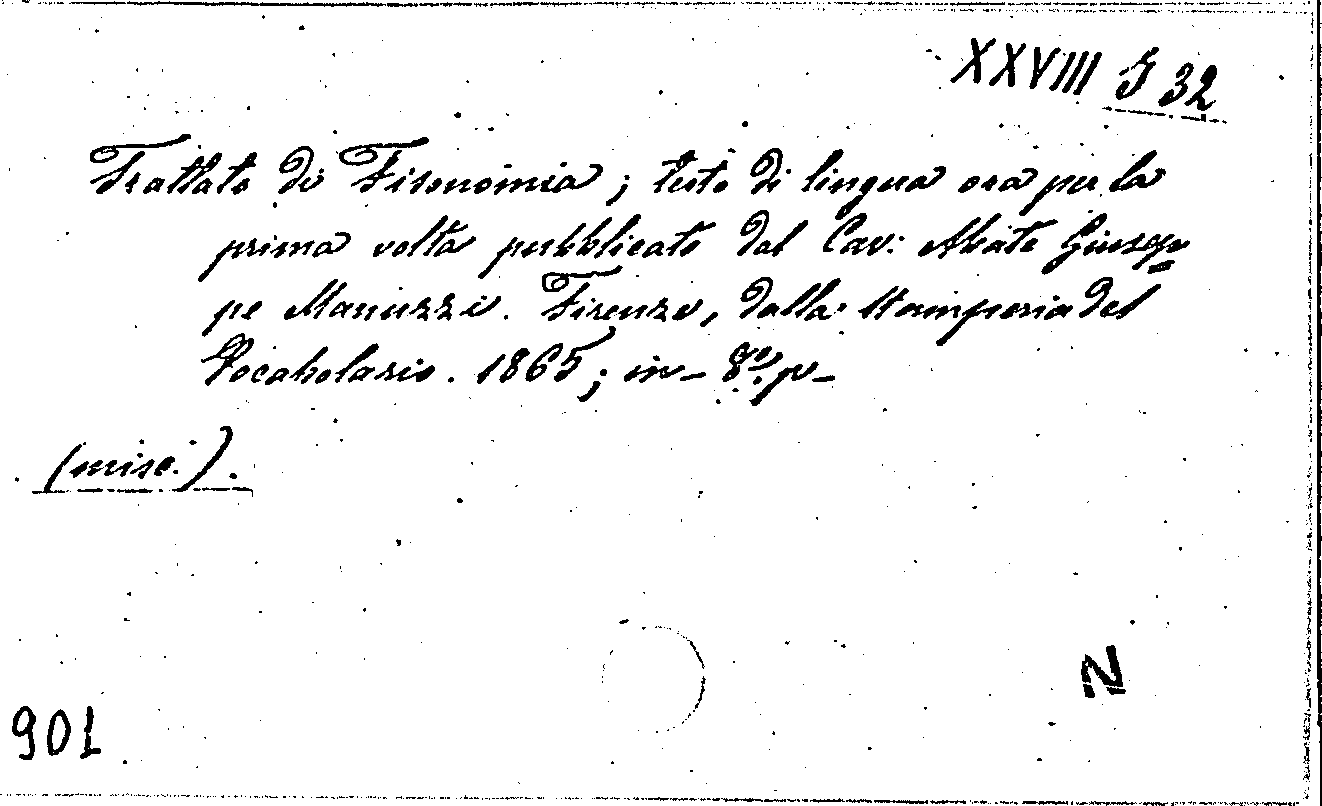 XXVIII J 32
Trattato di Fisonomia; testo di lingua ora per la
prima volta pubblicato dal Cav: Abate Giusep=
pe Manuzzi. Firenze, dalla Stamperia del
Vocabolario. 1865; in-8º. p-
(misc.).
N
901